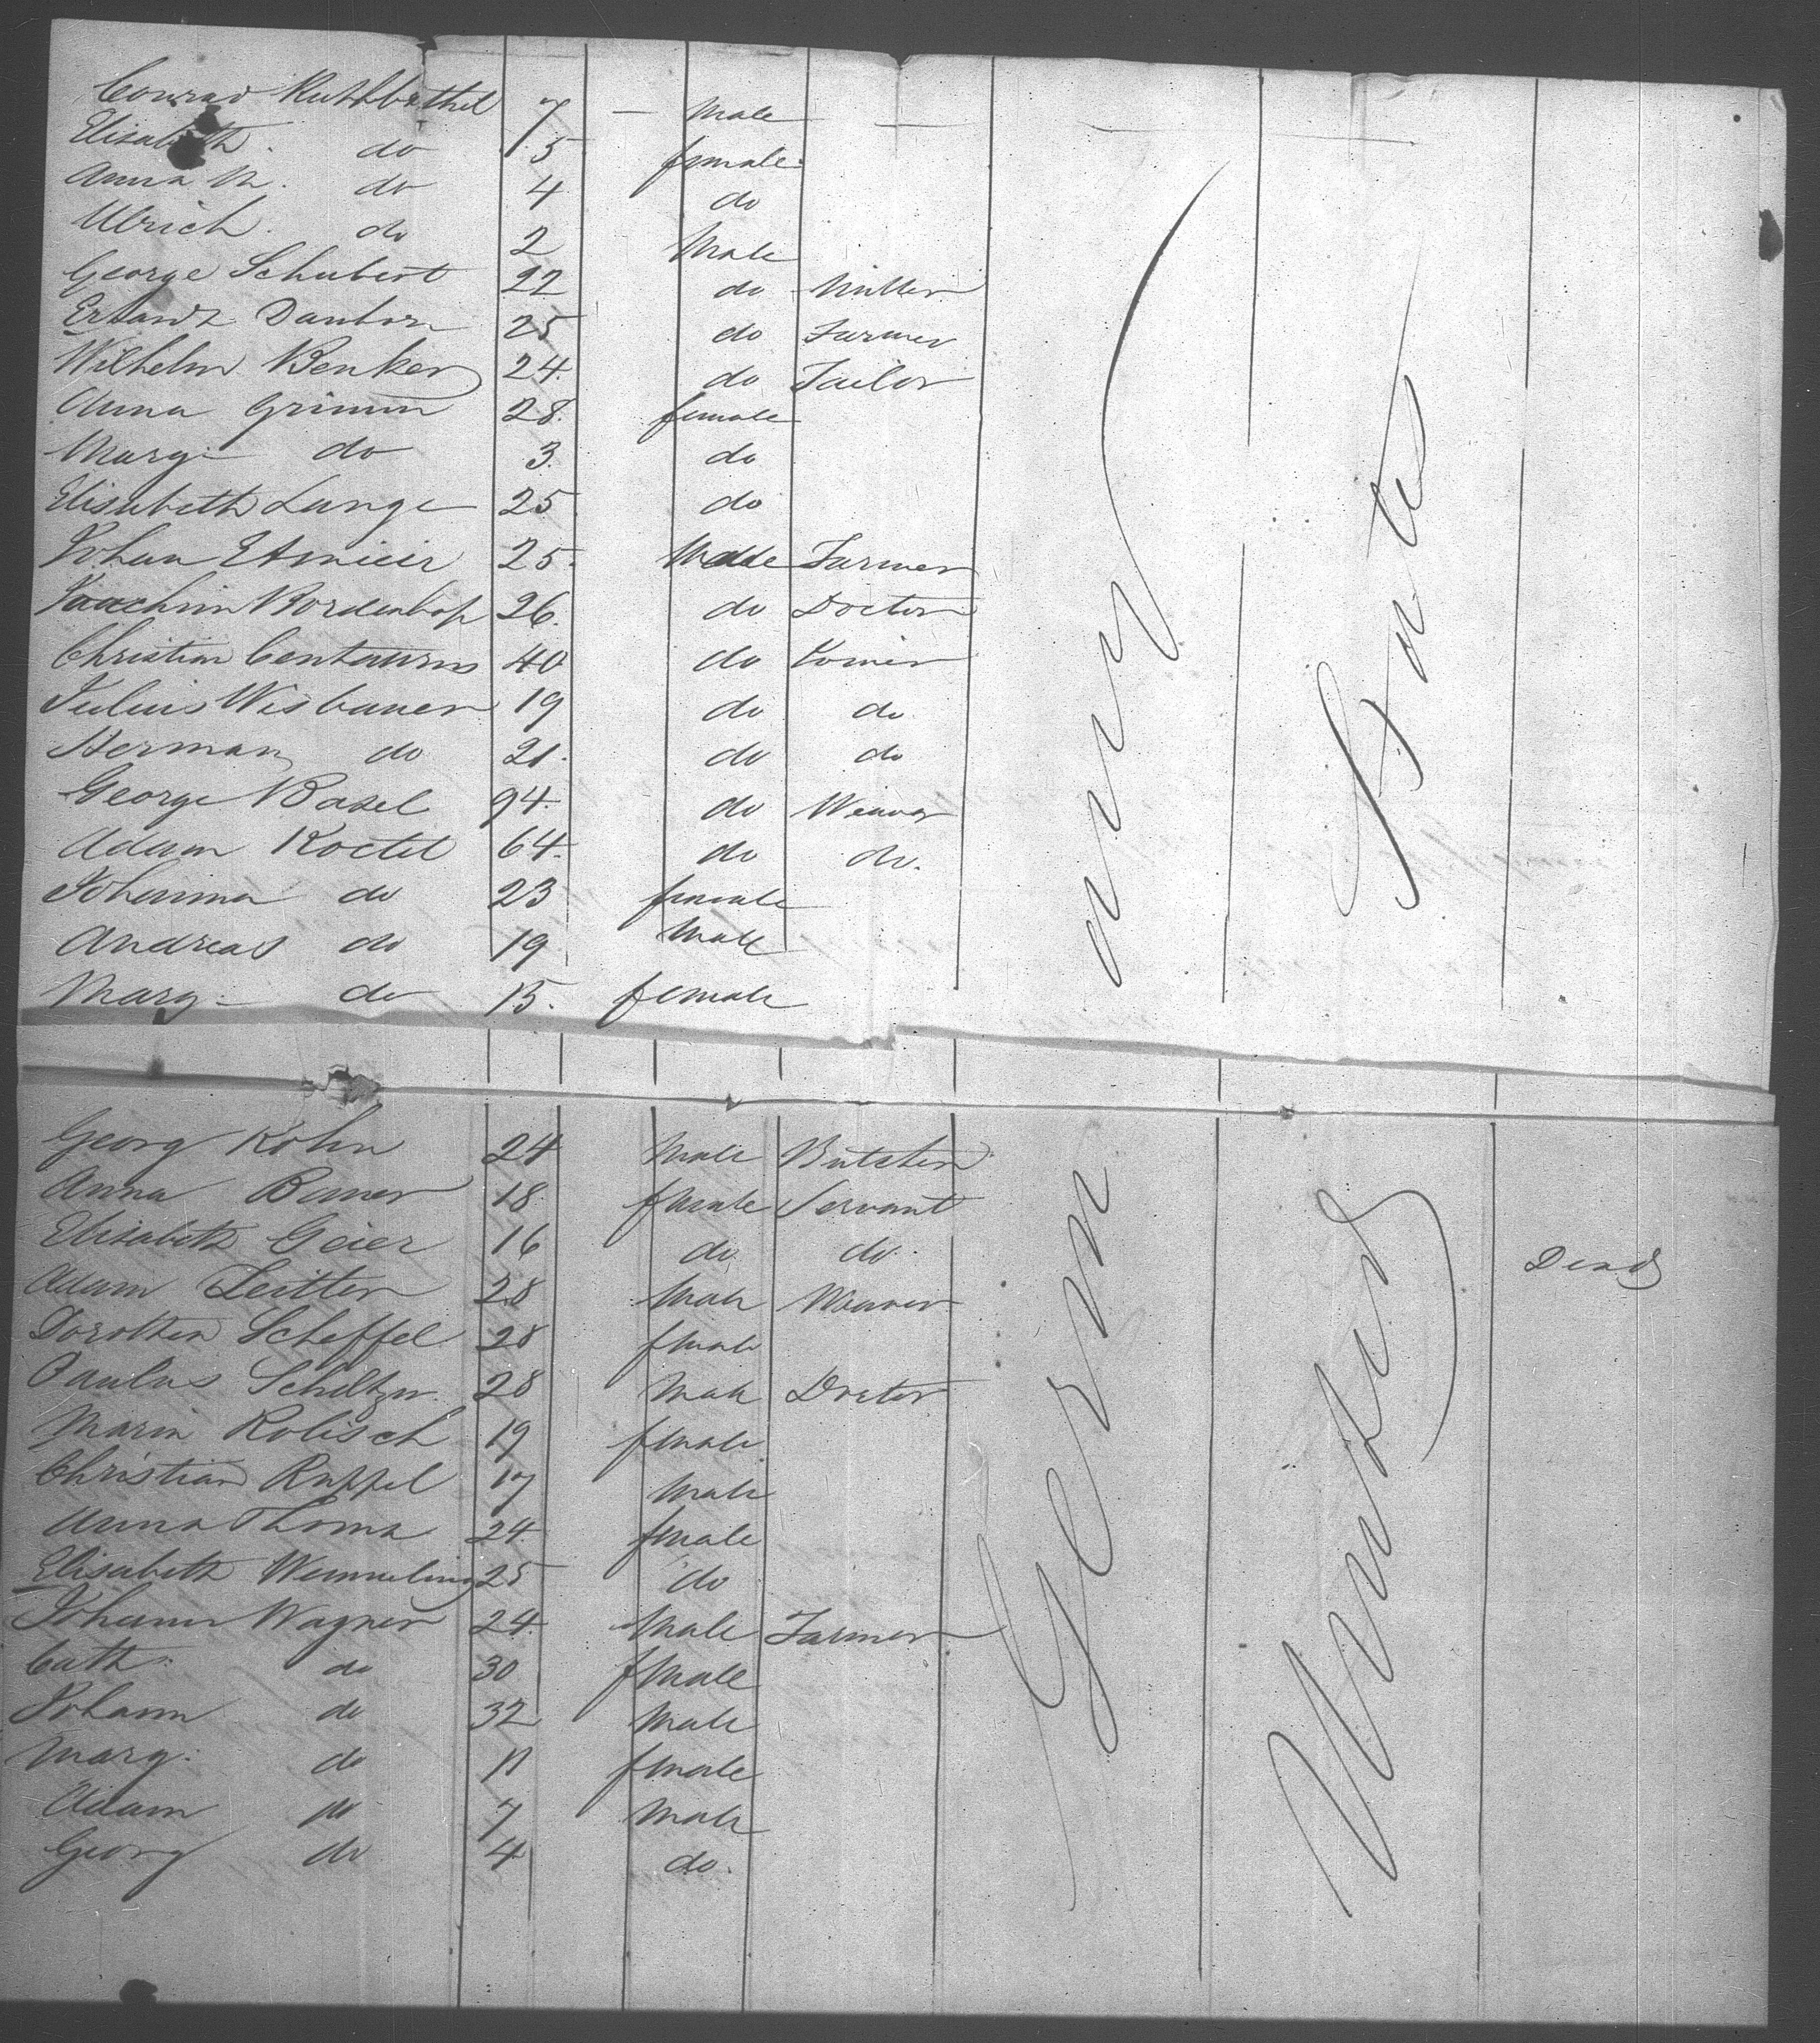 Conrad Ruthbethel 7 — Male
Elisabeth do 5 female
Anna M. do 4 do
Ulrich do 2 Male
George Schubert 22 do Miller
Erhardt 25 do Farmer
Wilhelm Benker 24 do Tailor
Anna Grimm 28 female
Marg: do 3 do
Elisabeth Lange 25 do
Johan 25 Male Farmer
Joachim 26 do Doctor
Christian Centaurus 40 do Joiner
Julius Wisbauer 19 do do
Herman do 21 do do
George Basel 94 do Weaver
Adam Koctel 64 do do.
Johanna do 23 female
Andreas do 19 Male
Marg: do 15. female
Georg Kohn 24 Male Butcher
Anna Bauer 18 female Servant
Elisabeth Geier 16 do do Dead
Adam Leitter 28 Male Weaver
Dorothea Scheffel 28 female
Paulus 28 Male Doctor
Maria Kolisch 19 female
Christian Ruppel 17 Male
Anna Thoma 24 female
Elisabeth Wemmeling 25 do
Johann Wagner 24 Male Farmer
Cath: do 30 female
Johann do 32 Male
Marg: do 11 female
Adam do 7 Male
Georg do 4 do.
Germany
United States